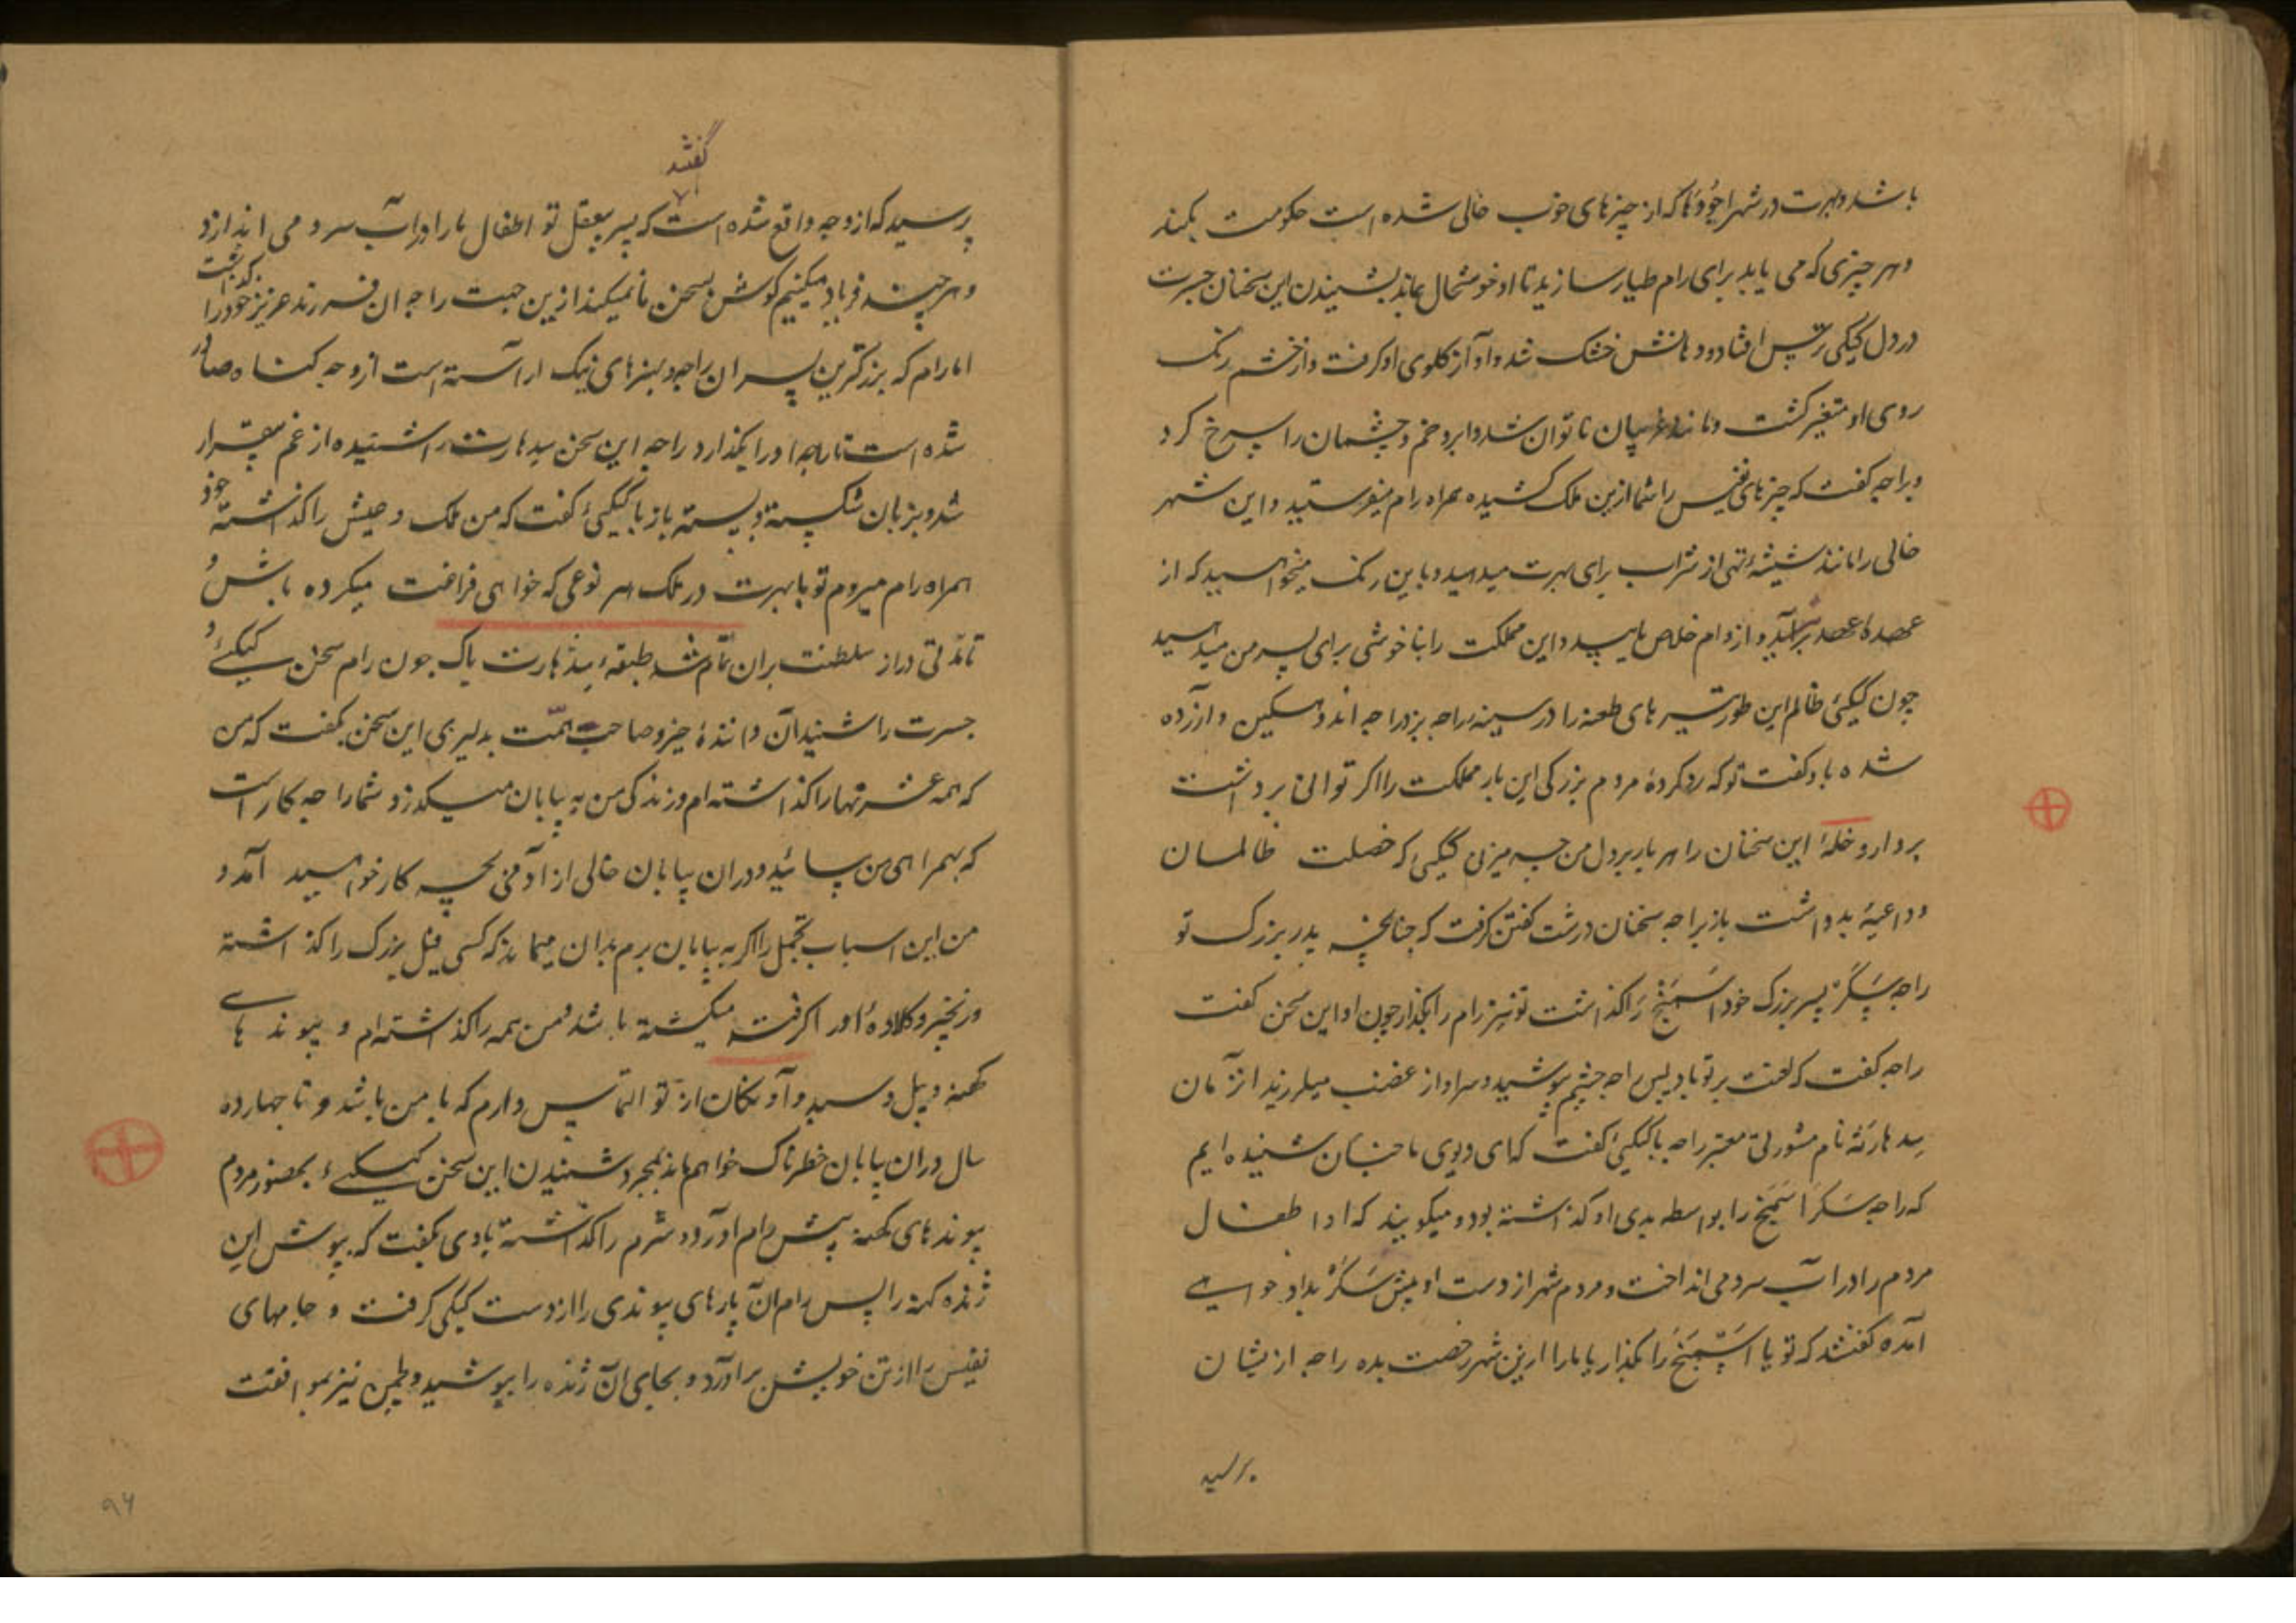 باشد و بهرت در شهر اجودها که از چیزهای خوب خالی شده است حکومت بکند
و هر چیزی که می باید برای رام طیار سازید تا او خوشحال بماند بشنیدن این سخنان جسرت
در دل کیکی ترس افتاد و دهانش خشک شد و آواز کلوی او کرفت و از خشم رنک
روی او متغیر کشت و مانند غریبان ناتوان شد و ابرو خم و چشمان را سرخ کرد
و براجه کفت که چیزهای نفیس را شما ازین ملک کشیده همراه رام میفرستید و این شهر
خالی را مانند شیشهٔ تهی از شراب برای بهرت میدهید و باین رنک میخواهید که از
عهدهٔ عهد برآید و از وام خلاص یابید و این مملکت را بناخوشی برای پسر من میدهید
چون کیکئی ظالم این طور تیرهای طعنه را در سینهٔ راجه بزد راجه اندوهکین و آزرده
شده باو کفت تو که رد کردهٔ مردم بزرکی این بار مملکت را اکر توانی برداشت
بردار و خلهٔ این سخنان را هر بار بر دل من چه میزنی کیکی که خصلت ظالمان
و داعیهٔ بد داشت باز براجه سخنان درشت کفتن کرفت که چنانچه پدر بزرک تو
راجه سَکَرْ پسر بزرک خود اسمنج را کذاشت تو نیز رام را بکذار چون او این سخن کفت
راجه کفت که لعنت بر تو باد پس راجه چشم پوشید و سر او از غضب میلرزید انزمان
سدهارته نام مشورتی معتبر راجه با کیکئی کفت که ای دیوی ما چنان شنیده ایم
که راجه سَکَر اَسَمَنج را بواسطه بدی او کذاشته بود و میکویند که او اطفال
مردم را در آب سرو می انداخت و مردم شهر از دست او پیش سَکَرْ بداد خواهی
آمده کفتند که تو یا اسمنج را بکذار یا ما را ازین شهر رخصت بده راجه ازیشان
پرسید
کفتند
پرسید که از چه وجه واقع شده است که پسر بیعقل تو اطفال ما را در آب سرو می اندازد
و هر چند فریاد میکنیم کوش بسخن ما نمیکند ازین جهت راجه آن فرزند عزیز خود را کذاشت
اما رام که بزرکترین پسران راجه و بهنرهای نیک آراسته است ازو چه کناه صادر
شده است تا راجه او را بکذارد راجه این سخن سدهارت را شنیده از غم بیقرار
شد و بزبان شکسته و بسته باز با کیکئی کفت که من ملک و عیش خود را کذاشته
همراه رام میروم تو با بهرت در ملک هر نوعی که خواهی فراغت میکرده باش و
تا مدتی دراز سلطنت بران تمام شد طبقهٔ سدهارت پاک چون رام سخن کیکئی و
جسرت را شنید آن دانندهٔ خیر و صاحب همت بدلیری این سخن بکفت که من
که همه عشرتها را کذاشته ام و زندکی من به بیابان میکذرد شما را چه کار است
که بهمراهی من بیائید و دران بیابان خالی از آدمی بچه کار خواهید آمد و
من این اسباب تجمل را اکر به بیابان برم بدان میماند که کسی فیل بزرک را کذاشته
و زنجیر و کلادهٔ او را کرفته میکشیده باشد و من همه را کذاشته ام و پیوندهای
کهنه و بیل و سبد و آوندکان از تو التماس دارم که با من باشد و تا چهارده
سال دران بیابان خطرناک خواهم ماند بمجرد شنیدن این سخن کیکئی بحضور مردم
پیوندهای کهنه پیش رام آورد و شرم را کذاشته باوی بکفت که بپوش این
ژنده کهنه را پس رام آن پارهای پیوندی را از دست کیکی کرفت و جامهای
نفیس را از تن خویش برآورد و بجای آن ژنده را بپوشید و لچمن نیز بموافقت
۹۴